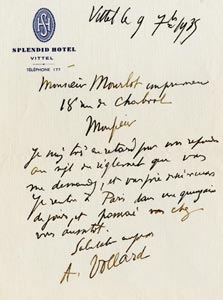 Vittel le 9 7bre 1935
SH
SPLENDID HOTEL
VITTEL
TÉLÉPHONE 177
Monsieur Mourlot imprimeur
18 rue de Chabrol
Monsieur
Je suis très en retard pour vous répondre
au sujet du règlement que vous
me demandez, et vous prie
Je rentre à Paris dans une quinzaine
de jours, et passerai vous chez
vous aussitôt.
Salutations
A. Vollard